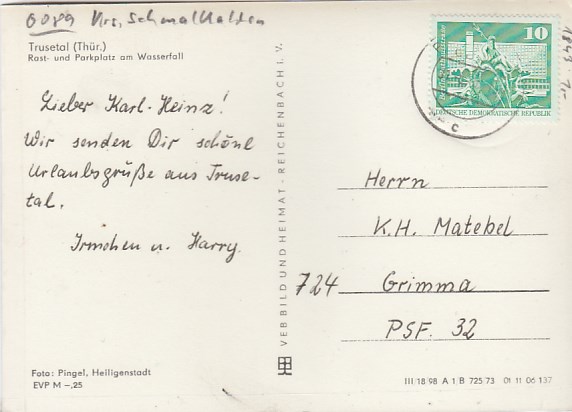 6089 Krs. Schmalkalden
Trusetal (Thür.)
Rast- und Parkplatz am Wasserfall
Lieber Karl-Heinz!
Wir senden Dir schöne
Urlaubsgrüße aus Truse-
tal.
Irmchen u. Harry.
Foto: Pingel, Heiligenstadt
EVP M –,25
VEB BILD UND HEIMAT · REICHENBACH I. V.
10
DEUTSCHE DEMOKRATISCHE REPUBLIK
c
Herrn
K.H. Matebel
724 Grimma
PSF. 32
III/18/98 A 1/B 725/73 01 11 06 137